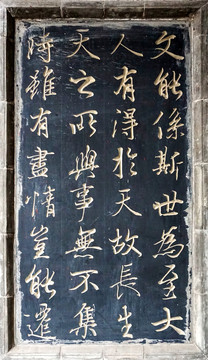 文能係斯世為至大
人有得於天故長生
天之所與事無不集
時雖有盡情豈能遷